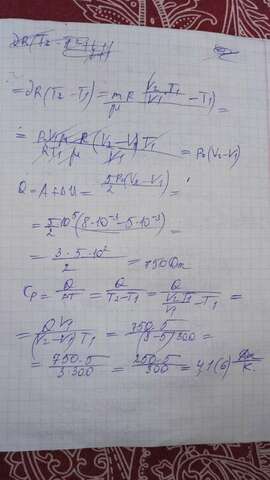 = νR(T₂ - T₁) = m/μ R (V₂ T₁/V₁ - T₁) =
= P₁V₁μ/RT₁μ R (V₂ - V₁)T₁/V₁ = P₀(V₂ - V₁)
Q = A + ΔU = 5/2 P₀(V₂ - V₁) =
= 5/2 10⁵(8·10⁻³ - 5·10⁻³) =
= 3·5·10²/2 = 750Дж
Cp = Q/ΔT = Q/T₂-T₁ = Q/(V₂/V₁ T₁ - T₁) =
= Q V₁/(V₂-V₁) T₁ = 750·5/(8-5)300 =
= 750·5/3·300 = 250·5/300 = 4,1(6) Дж/К.